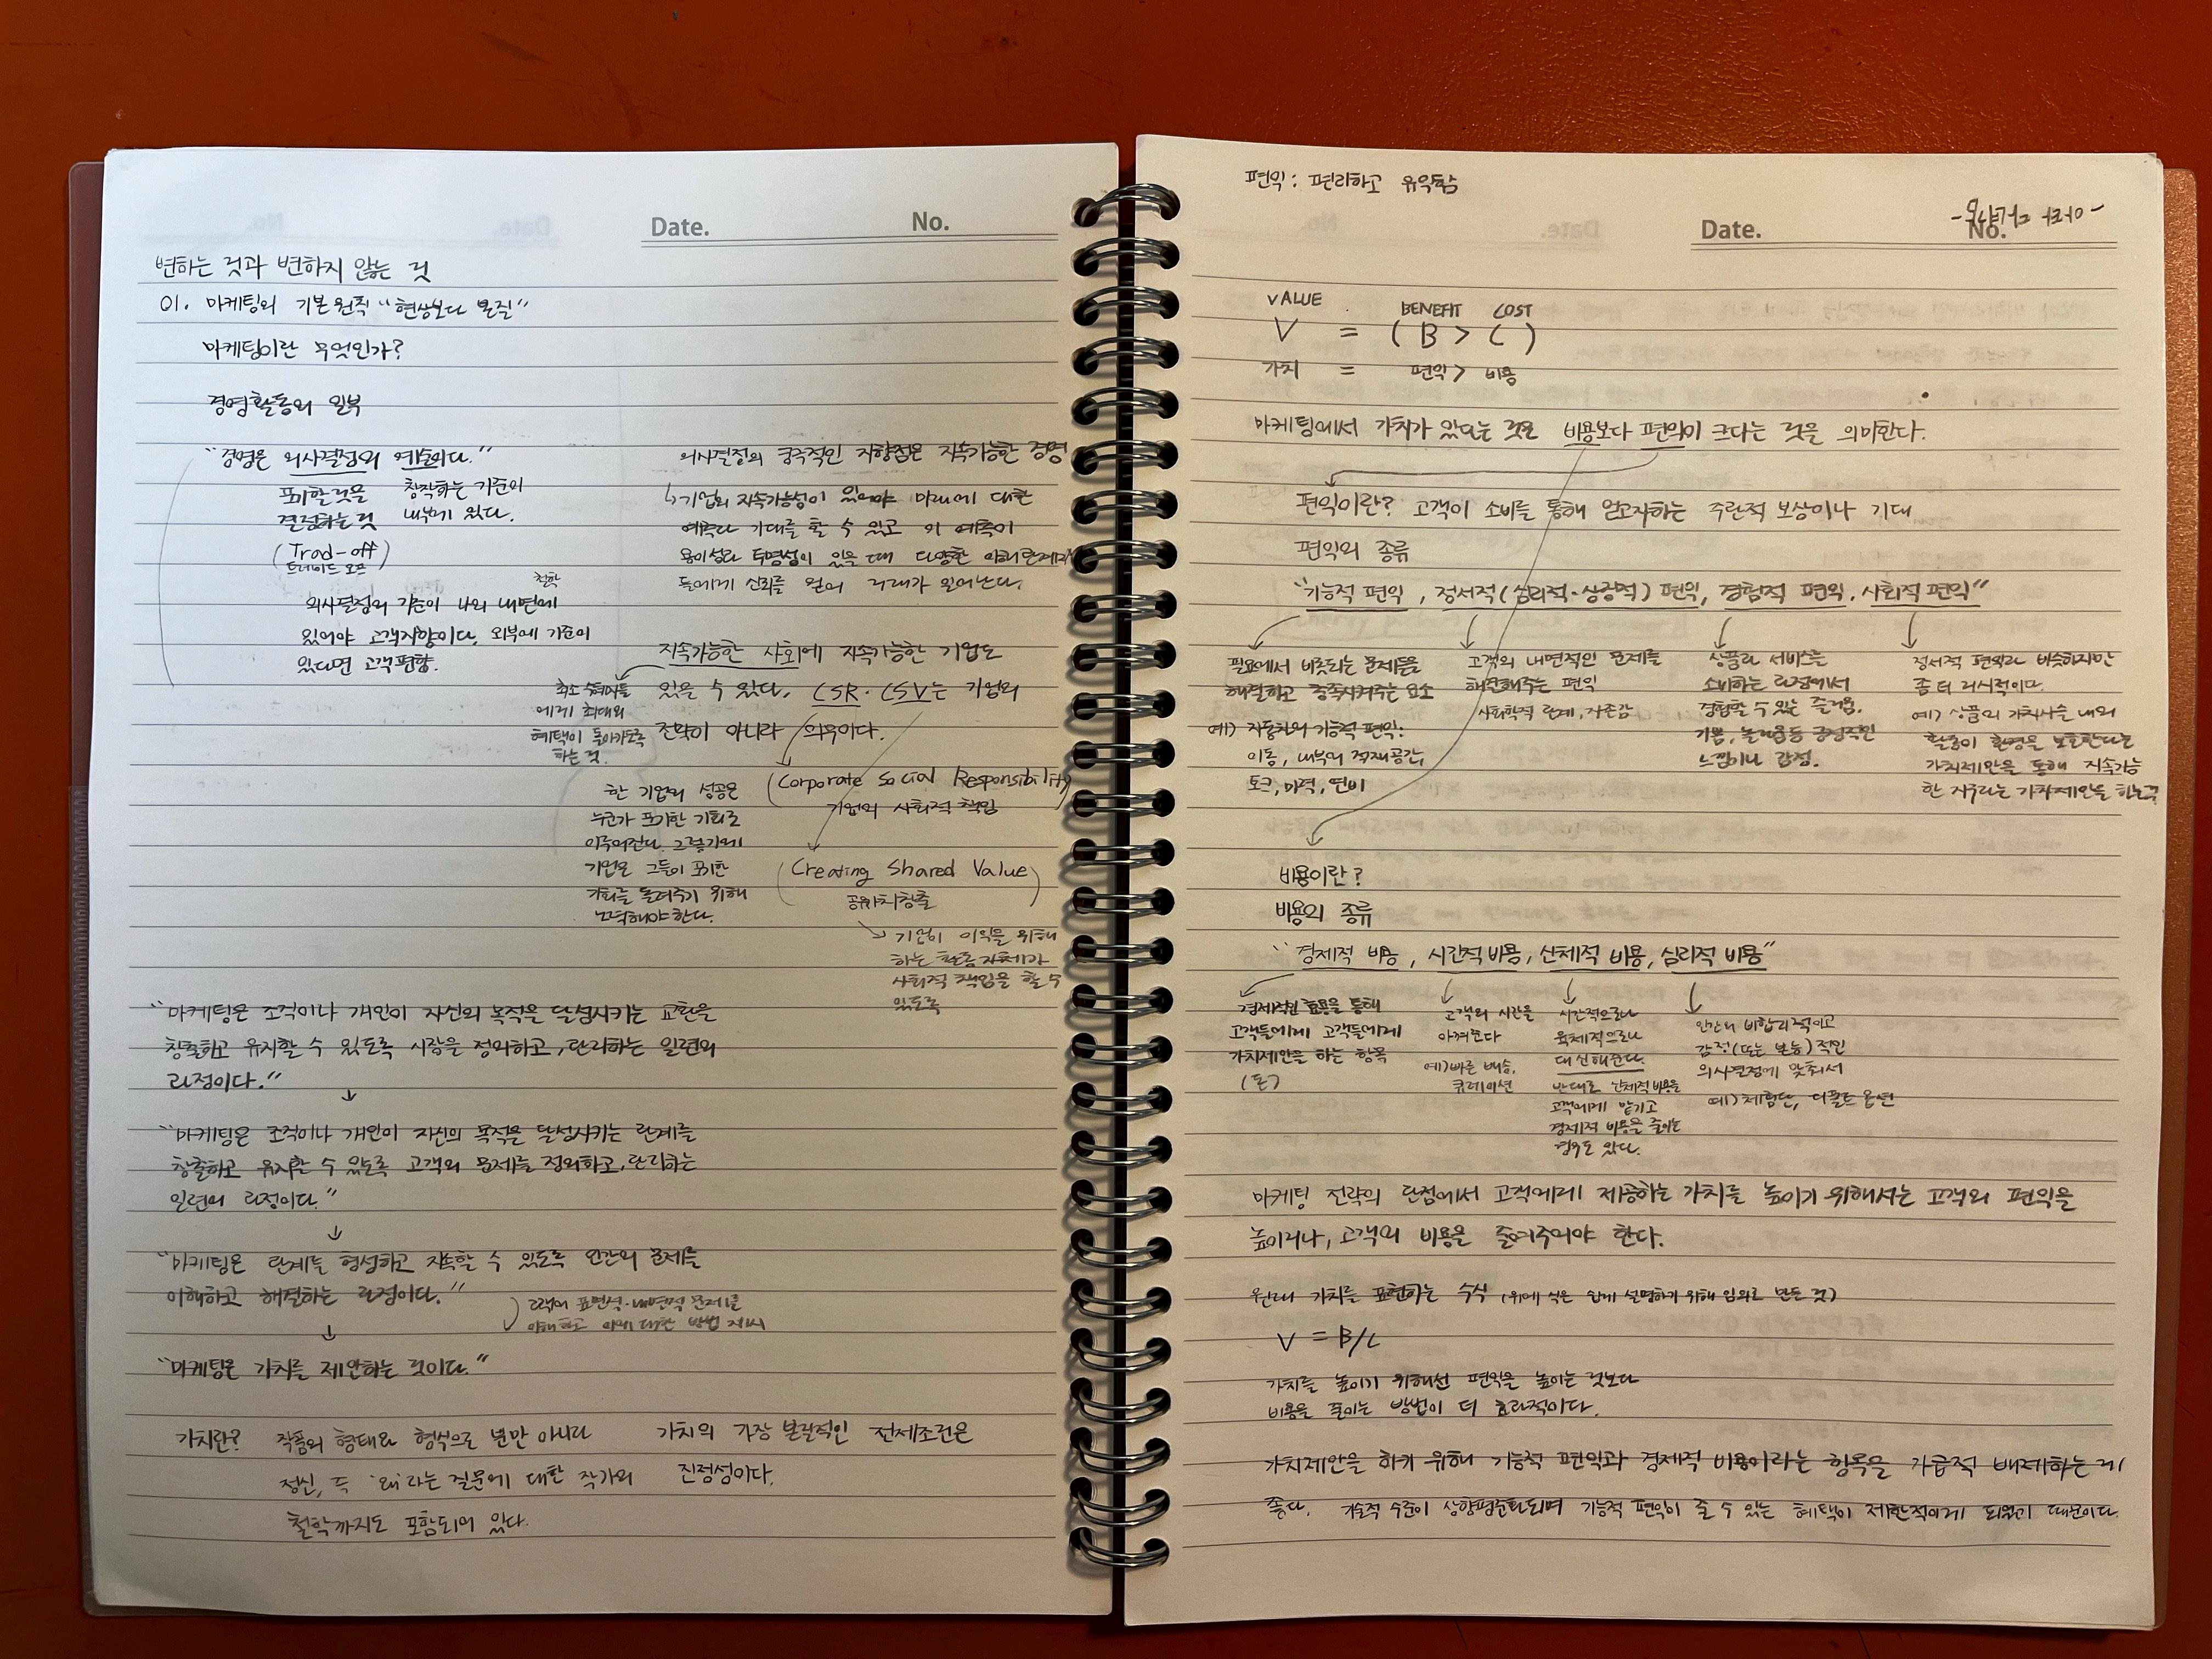 Date. No.
변하는 것과 변하지 않는 것
01. 마케팅의 기본원칙 "현상보다 본질"
마케팅이란 무엇인가?
경영활동의 일부
"경영은 의사결정의 연속이다."
포기할것을
결정하는것
(Trad-off)
트레이드 오프
창작하는 기준이
내부에 있다.
철학
의사결정의 기준이 나의 내면에
있어야 고객지향이다. 외부에 기준이
있다면 고객편향.
의사결정의 궁극적인 지향점은 지속가능한 경영
↳기업의 지속가능성이 있어야 미래에 대한
예측과 기대를 할 수 있고 이 예측이
용이성과 투명성이 있을 때 다양한 이해관계자
들에게 신뢰를 얻어 거래가 일어난다.
지속가능한 사회에 지속가능한 기업도
있을 수 있다. CSR·CSV는 기업의
전략이 아니라 의무이다.
최소 수혜자들
에게 최대의
혜택이 돌아가도록
하는 것.
(Corporate Social Responsibility)
기업의 사회적 책임
한 기업의 성공은
누군가 포기한 기회로
이루어진다. 그렇기에
기업은 그들이 포기한
기회를 돌려주기 위해
노력해야 한다.
(Creating Shared Value)
공유가치창출
기업이 이익을 위해
하는 활동 자체가
사회적 책임을 할 수
있도록
"마케팅은 조직이나 개인이 자신의 목적을 달성시키는 교환을
창출하고 유지할 수 있도록 시장을 정의하고, 관리하는 일련의
과정이다."
↓
"마케팅은 조직이나 개인이 자신의 목적을 달성시키는 관계를
창출하고 유지할 수 있도록 고객의 문제를 정의하고, 관리하는
일련의 과정이다."
↓
"마케팅은 관계를 형성하고 지속할 수 있도록 인간의 문제를
이해하고 해결하는 과정이다."
고객의 표면적·내면적 문제를
이해하고 이에 대한 방법 제시
↓
"마케팅은 가치를 제안하는 것이다."
가치란? 작품의 형태와 형식으로 뿐만 아니라
정신, 즉 '왜'라는 질문에 대한 작가의
철학까지도 포함되어 있다.
가치의 가장 본질적인 전제조건은
진정성이다.
편익: 편리하고 유익함
Date. No.
VALUE BENEFIT COST
V = (B > C)
가치 = 편익> 비용
마케팅에서 가치가 있다는 것은 비용보다 편익이 크다는 것을 의미한다.
편익이란? 고객이 소비를 통해 얻고자하는 주관적 보상이나 기대
편익의 종류
"기능적 편익, 정서적(심리적·상징적) 편익, 경험적 편익, 사회적 편익"
필요에서 비롯되는 문제들을
해결하고 충족시켜주는 요소
예) 자동차의 기능적 편익:
이동, 내부의 적재공간,
토크, 마력, 연비
고객의 내면적인 문제를
해결해주는 편익
사회학적 관계, 자존감
상품과 서비스를
소비하는 과정에서
경험할 수 있는 즐거움,
기쁨, 놀라움등 긍정적인
느낌이나 감정.
정서적 편익과 비슷하지만
좀 더 거시적이다.
예) 상품의 가치사슬 내의
활동이 환경을 보호한다는
가치제안을 통해 지속가능
한 지구라는 가치제안을 하는것
비용이란?
비용의 종류
"경제적 비용, 시간적 비용, 신체적 비용, 심리적 비용"
경제적인 효용을 통해
고객들에게 고객들에게
가치제안을 하는 항목
(돈)
고객의 시간을
아껴준다
예)빠른 배송,
큐레이션
시간적으로나
육체적으로나
대신해준다.
반대로 신체적 비용을
고객에게 맡기고
경제적 비용을 줄이는
경우도 있다.
인간의 비합리적이고
감정(또는 본능)적인
의사결정에 맞춰서
예)체험단, 디폴트 옵션
마케팅 전략의 관점에서 고객에게 제공하는 가치를 높이기 위해서는 고객의 편익을
높이거나, 고객의 비용을 줄여주어야 한다.
원래 가치를 표현하는 수식 (위에 식은 쉽게 설명하기 위해 임의로 만든 것)
V = B/C
가치를 높이기 위해선 편익을 높이는 것보다
비용을 줄이는 방법이 더 효과적이다.
가치제안을 하기 위해 기능적 편익과 경제적 비용이라는 항목을 가급적 배제하는 게
좋다. 기술적 수준이 상향평준화되며 기능적 편익이 줄 수 있는 혜택이 제한적이게 되었기 때문이다.